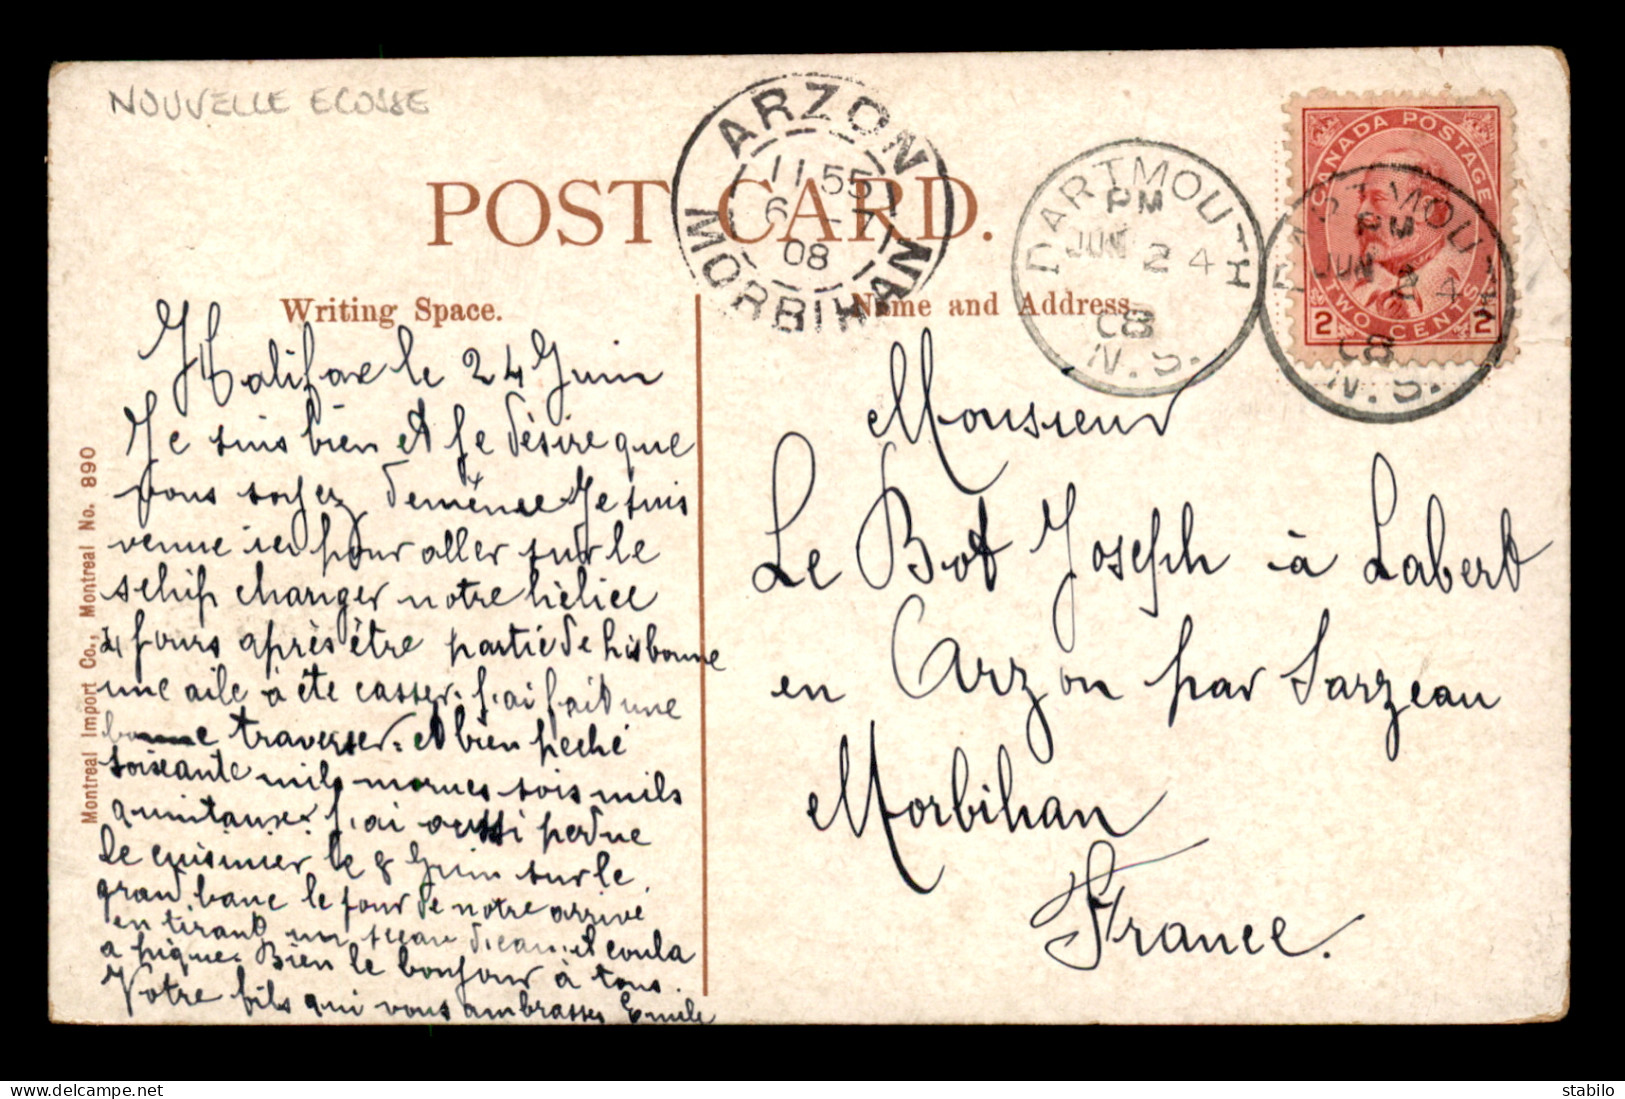 NOUVELLE ECOSSE
POST CARD.
ARZON
11 55
6 -7
08
MORBIHAN
DARTMOUTH
PM
JUN 24
08
N.S.
DARTMOUTH
PM
JUN 24
08
N.S.
CANADA POSTAGE
2 TWO CENTS 2
Writing Space.
Name and Address.
Montreal Import Co., Montreal No. 890
Halifax le 24 Juin
Je suis bien et je désire que
vous soyez de même Je suis
venue ici pour aller sur le
schip changer notre hélice
4 jours après être partie de lisbonne
une aile à été casser. j'ai fait une
bonne traverser. et bien peché
soixante mils morues sois mils
quintaux. j'ai aussi perdue
le cuisinier le 8 Juin sur le
grand banc le jour de notre arrivé
en tirant un seau d'eau. il coula
a pique. Bien le bonjour à tous.
Votre fils qui vous ambrasses Emile
Monsieur
Le Bot Joseph à Labert
en Arzon par Sarzeau
Morbihan
France.
stabilo